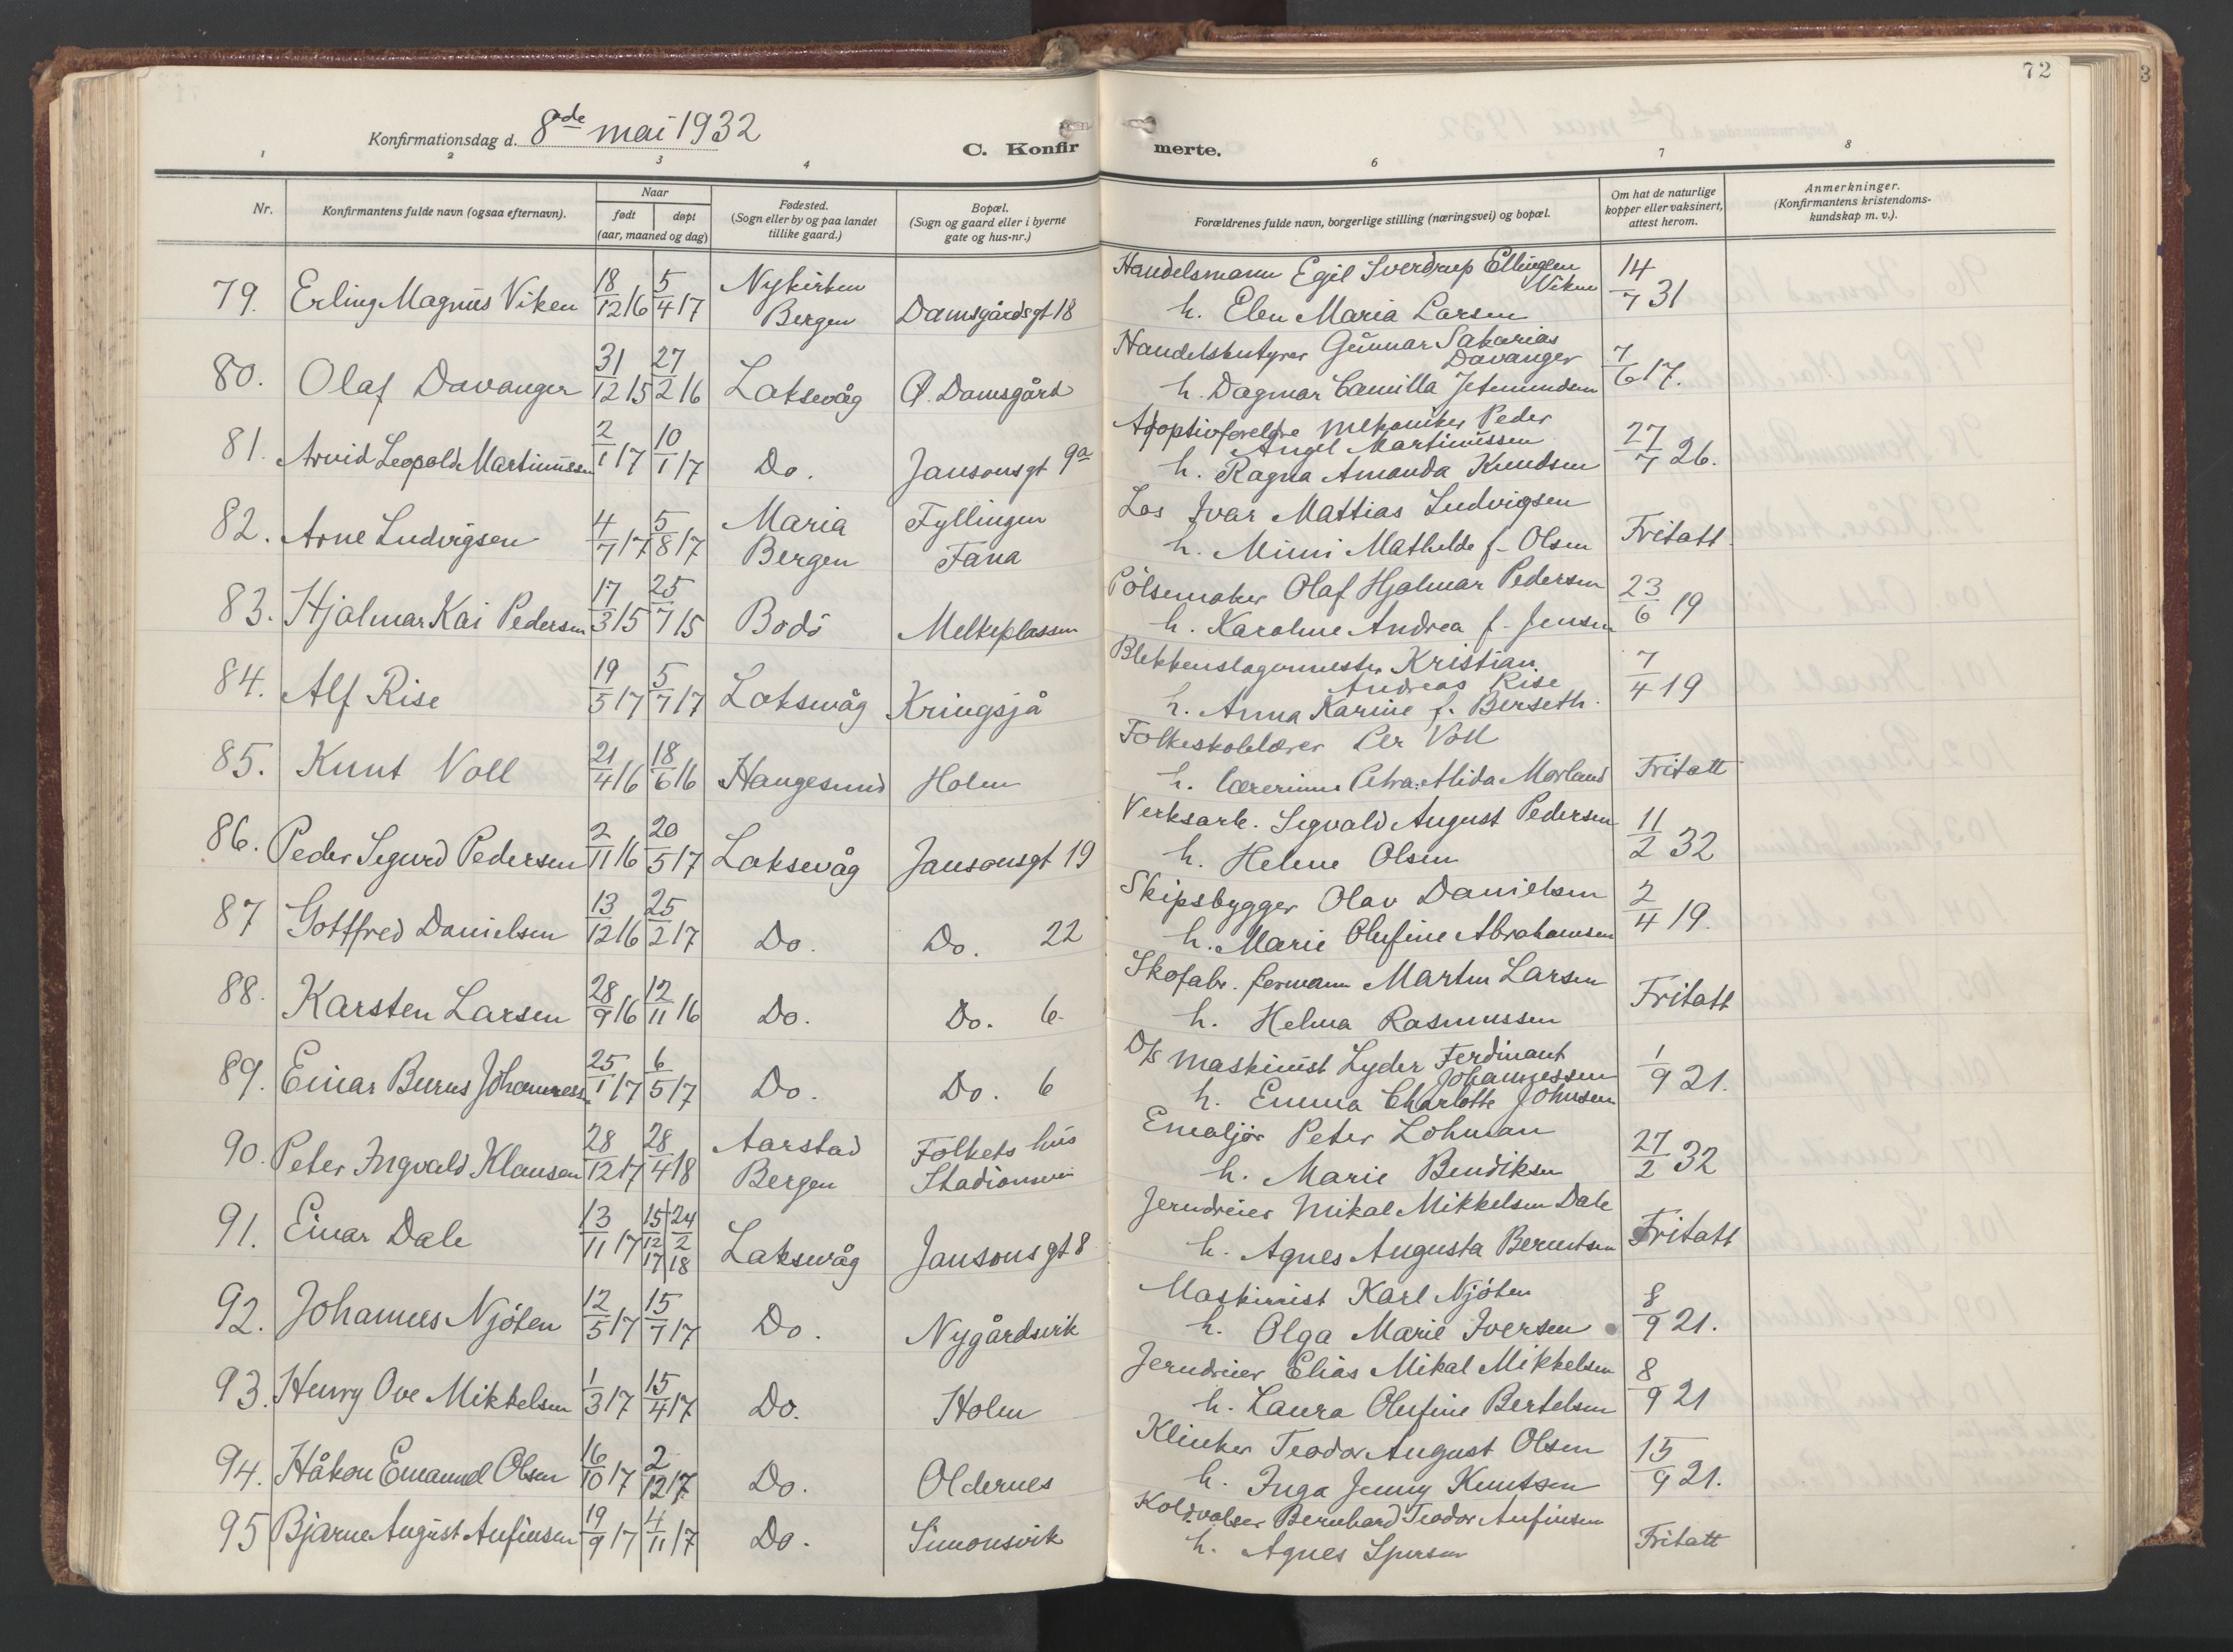 72
3
Konfirmationsdag d. 8de mai 1932
C. Konfirmerte.
1 2 3 4 6 7 8
Nr.
Konfirmantens fulde navn (ogsaa efternavn).
Naar
født døpt
(aar, maaned og dag)
Fødested.
(Sogn eller by og paa landet
tillike gaard.)
Bopæl.
(Sogn og gaard eller i byerne
gate og hus-nr.)
Forældrenes fulde navn, borgerlige stilling (næringsvei) og bopæl.
Om hat de naturlige
kopper eller vaksinert,
attest herom.
Anmerkninger.
(Konfirmantens kristendoms-
kundskap m. v.).
79. Erling Magnus Viken 18/12 16 5/4 17 Nykirken Bergen Damsgårdsgt 18
Handelsmann Egil Sverdrup Ellingsen Viken
h. Elen Maria Larsen
14/7 31
80. Olaf Davanger 31/12 15 27/2 16 Laksevåg Ø. Damsgård
Handelsbestyrer Gunnar Sakarias Davanger
h. Dagmar Camilla Jetmundsen
7/6 17.
81. Arvid Leopold Martinussen 2/1 17 10/1 17 Do. Jansonsgt 9a
Adoptivforeldre Mekaniker Peder
Angel Martinussen
h. Ragna Amanda Knudsen
27/7 26.
82. Arne Ludvigsen 4/7 17 5/8 17 Maria Bergen Fyllingen Fana
Los Ivar Mattias Ludvigsen
h. Mimi Mathilde f. Olsen
Fritatt
83. Hjalmar Kai Pedersen 17/3 15 25/7 15 Bodö Melkeplassen
Pölsemaker Olaf Hjalmar Pedersen
h. Karoline Andrea f. Jensen
23/6 19
84. Alf Rise 19/5 17 5/7 17 Laksevåg Kringsjå
Blikkenslagermester Kristian
Andreas Rise
h. Anna Karine f. Berseth.
7/4 19
85. Knut Voll 21/4 16 18/6 16 Haugesund Holen
Folkeskolelærer Per Voll
h. lærerinne Petra Alida Morland
Fritatt
86. Peder Sigurd Pedersen 2/11 16 20/5 17 Laksevåg Jansonsgt 19
Verksarb. Sigvald August Pedersen
h. Helene Olsen
11/2 32
87 Gottfred Danielsen 13/12 16 25/2 17 Do. Do. 22
Skipsbygger Olav Danielsen
h. Marie Olufine Abrahamsen
2/4 19.
88. Karsten Larsen 28/9 16 12/11 16 Do. Do. 6
Skofabr. formann Martin Larsen
h. Helma Rasmussen
Fritatt
89. Einar Burns Johannessen 25/1 17 6/5 17 Do. Do. 6
D/s maskinist Lyder Ferdinant
Johannessen
h. Emma Charlotte Johnsen
1/9 21.
90. Peter Ingvald Klausen 28/12 17 28/4 18 Aarstad Bergen Folkets hus Stadionvei
Emaljör Peter Lohman
h. Marie Bendiksen
27/2 32
91. Einar Dale 13/11 17 15/12 17 24/2 18 Laksevåg Jansonsgt 8
Jerndreier Mikal Mikkelsen Dale
h. Agnes Augusta Berntsen
Fritatt
92. Johannes Njöten 12/5 17 15/7 17 Do. Nygårdsvik
Maskinist Karl Njöten
h. Olga Marie Iversen
8/9 21.
93. Henry Ove Mikkelsen 1/3 17 15/4 17 Do. Holen
Jerndreier Elias Mikal Mikkelsen
h. Laura Olufine Bertelsen
8/9 21
94. Håkon Emanuel Olsen 16/10 17 2/12 17 Do. Oldernes
Klinker Teodor August Olsen
h. Inga Jenny Knutsen
15/9 21.
95 Bjarne August Anfinsen 19/9 17 4/11 17 Do. Simonsvik
Koldvalser Bernhard Teodor Anfinsen
h. Agnes
Fritatt